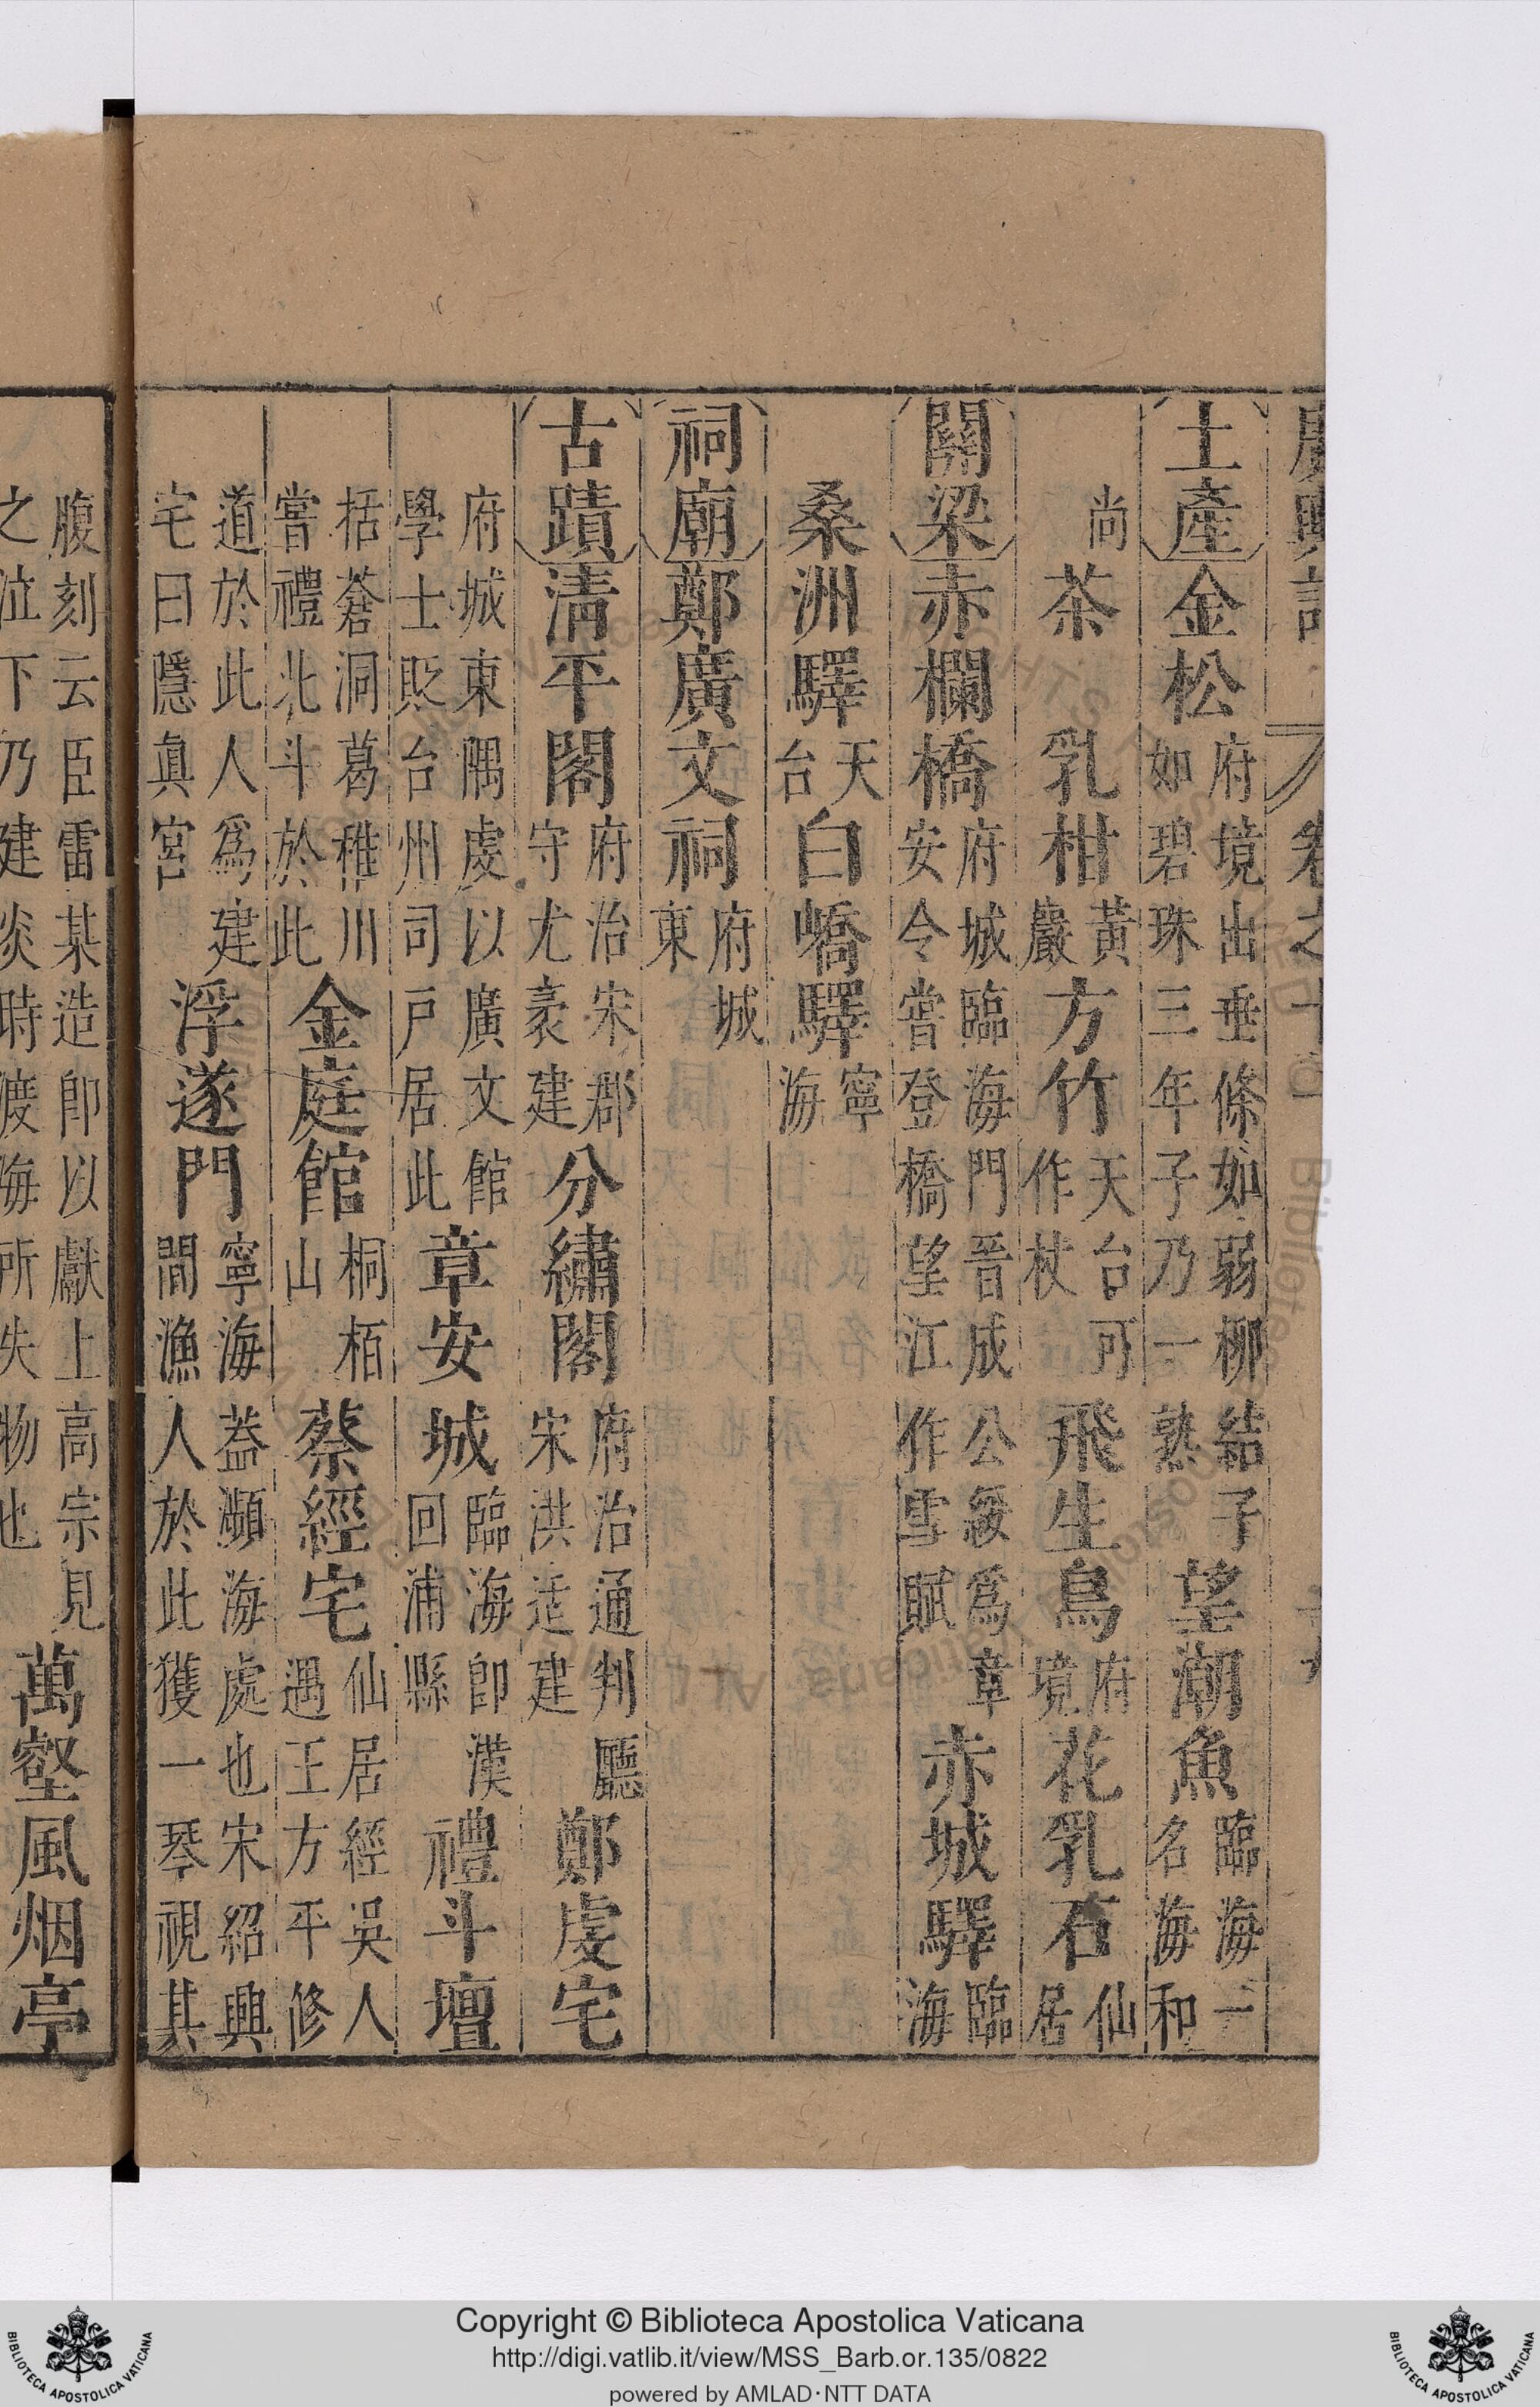 廣輿記 卷之十
土產金松府境出垂條如弱柳結子如碧珠三年子乃一熟望潮魚臨海一名海和
尚茶乳柑黃巖方竹天台可作杖飛生鳥府境花乳石仙居
關梁赤欄橋府城臨海門晉成公綏為章安令嘗登橋望江作雪賦赤城驛臨海
桑洲驛天台白嶠驛寧海
祠廟鄭廣文祠府城東
古蹟清平閣府治宋郡守尤袤建分繡閣府治通判廳宋洪适建鄭虔宅
府城東隅虔以廣文館學士貶台州司戶居此章安城臨海即漢回浦縣禮斗壇
括蒼洞葛稚川嘗禮北斗於此金庭館桐栢山蔡經宅仙居經吳人遇王方平修
道於此人為建宅曰隱眞宮浮遂門寧海葢瀕海處也宋紹興間漁人於此獲一琴視其
腹刻云臣雷某造卽以獻上高宗見之泣下乃建炎時渡海所失物也萬壑風烟亭
Copyright © Biblioteca Apostolica Vaticana
http://digi.vatlib.it/view/MSS_Barb.or.135/0822
powered by AMLAD·NTT DATA
BIBLIOTECA APOSTOLICA VATICANA
BIBLIOTECA APOSTOLICA VATICANA